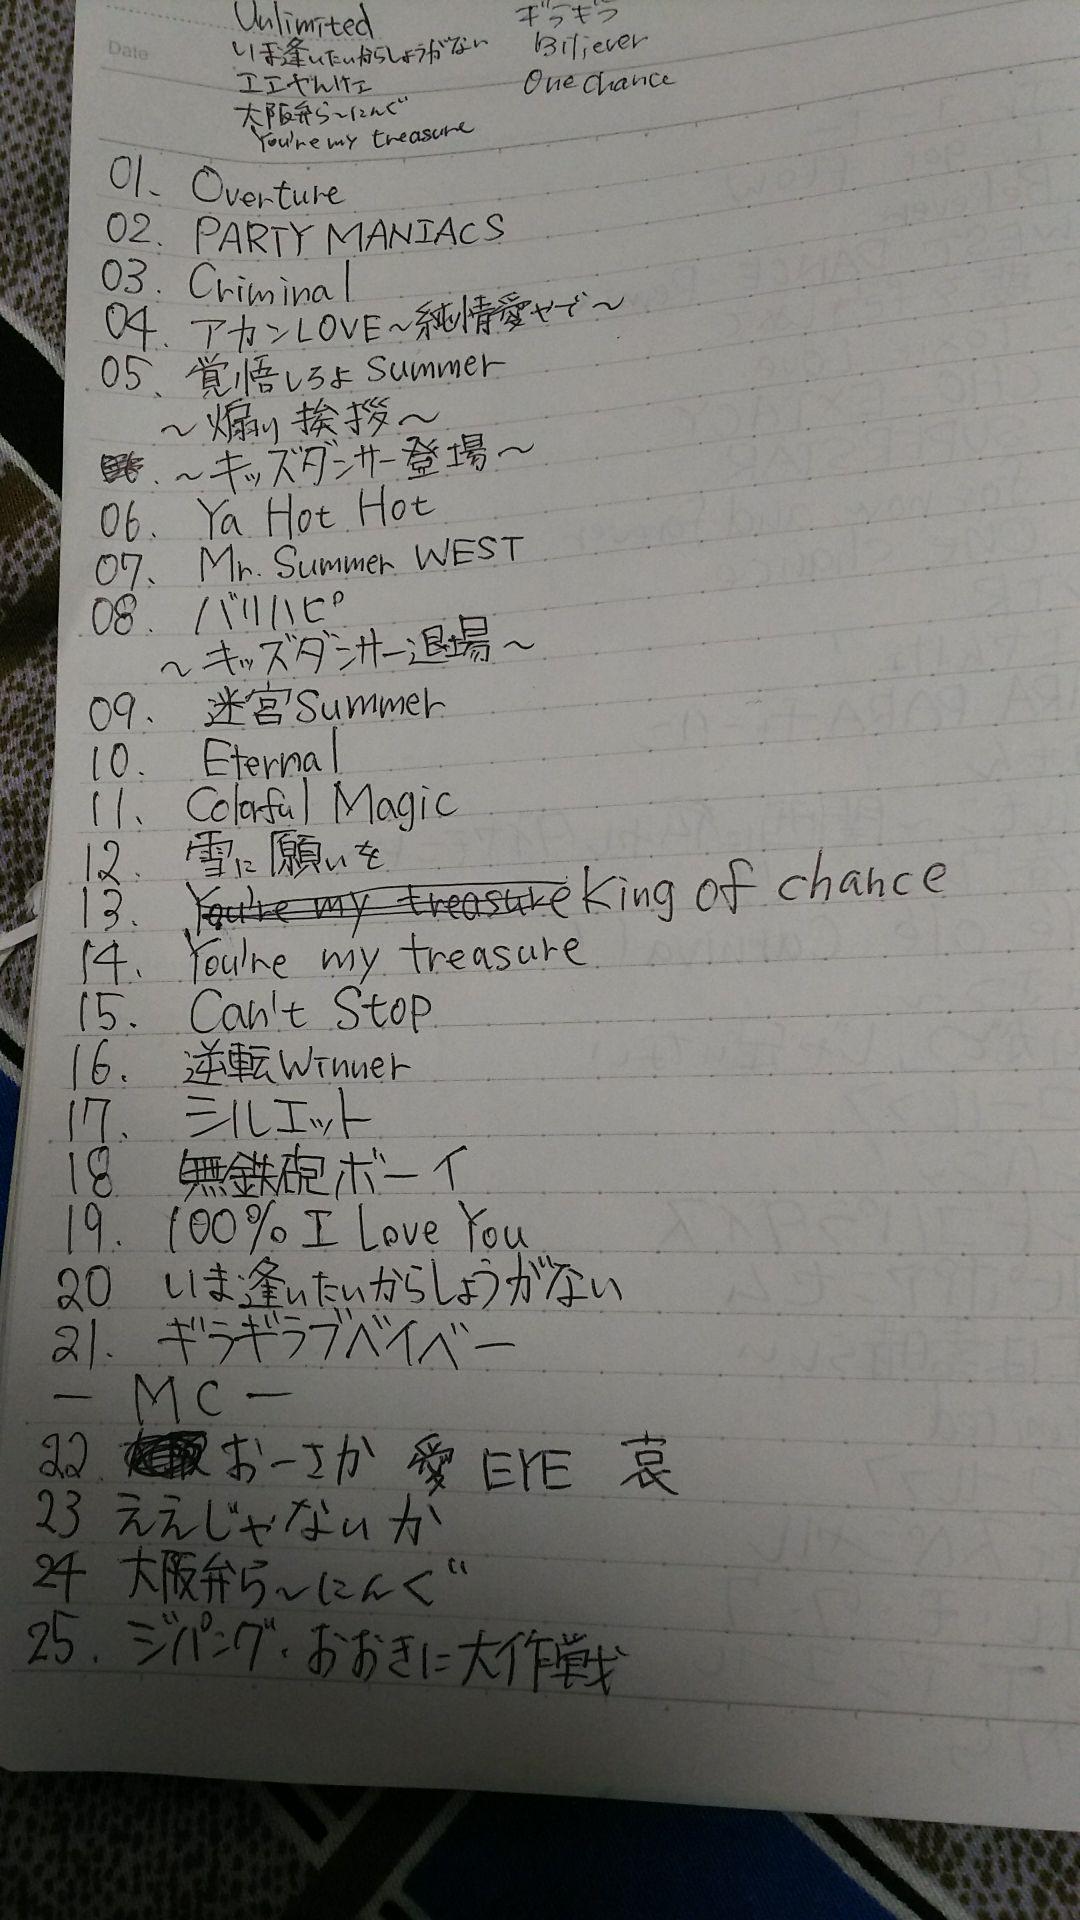 Unlimited
いま逢いたいからしょうがない
エエやんけェ
大阪弁ら〜にんぐ
You're my treasure
ギラギラ
Believer
One chance
Date
01. Overture
02. PARTY MANIACS
03. Criminal
04. アカンLOVE〜純情愛やで〜
05. 覚悟しろよSummer
〜煽り挨拶〜
〜キッズダンサー登場〜
06. Ya Hot Hot
07. Mr. Summer WEST
08. バリハピ
〜キッズダンサー退場〜
09. 迷宮Summer
10. Eternal
11. Colorful Magic
12. 雪に願いを
13. You're my treasure King of chance
14. You're my treasure
15. Can't Stop
16. 逆転Winner
17. シルエット
18 無鉄砲ボーイ
19. 100% I Love You
20 いま逢いたいからしょうがない
21. ギラギラブベイベー
ー MC ー
22. おーさか 愛 EYE 哀
23 ええじゃないか
24 大阪弁ら〜にんぐ
25. ジパング・おおきに大作戦